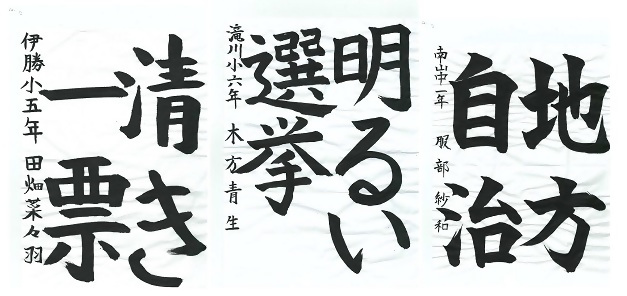 清き
一票
伊勝小五年 田畑菜々羽
明るい
選挙
滝川小六年 木方青生
地方
自治
南山中一年 服部紗和